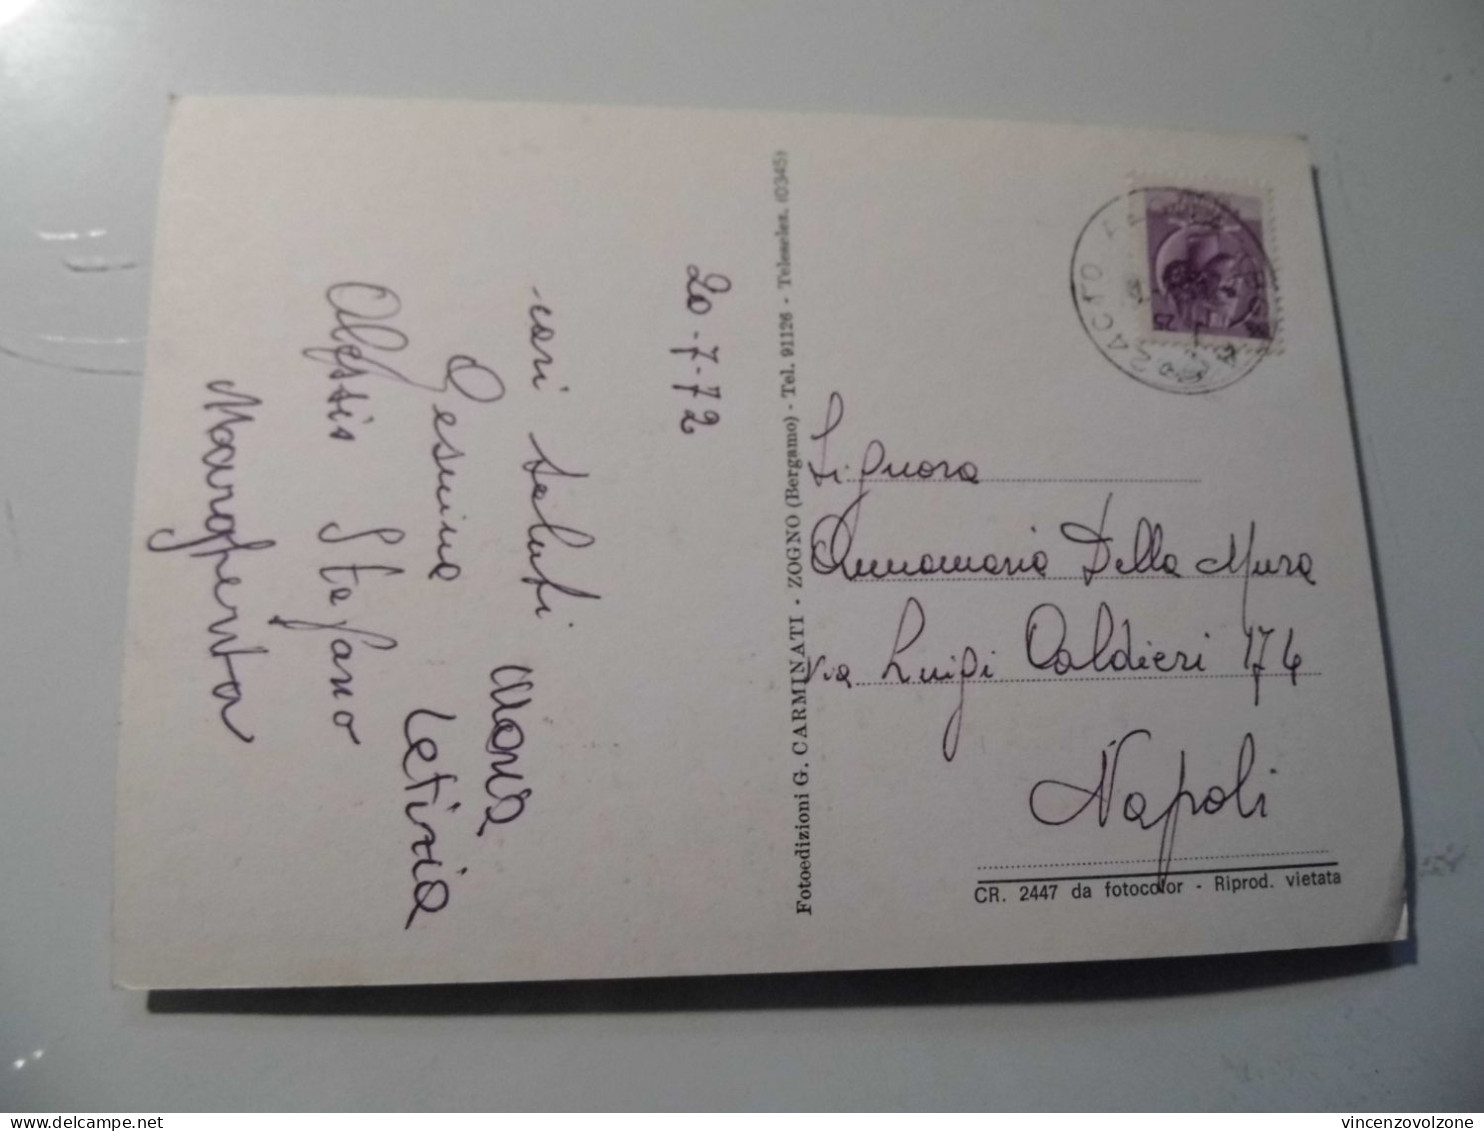 20-7-72
cari saluti Maria
Gesuina Letizia
Alessio Stefano
Margherita
Fotoedizioni G. CARMINATI - ZOGNO (Bergamo) - Tel. 91126 - Teleselez. (0345)
25
Signora
Annamaria Della Mura
via Luigi Caldieri 174
Napoli
CR. 2447 da fotocolor - Riprod. vietata
vincenzovolzone